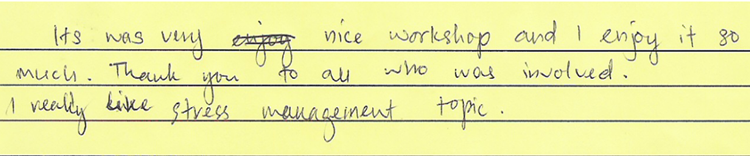 Its was very enjoy nice workshop and I enjoy it so
much. Thank you to all who was involved.
I really like stress management topic.